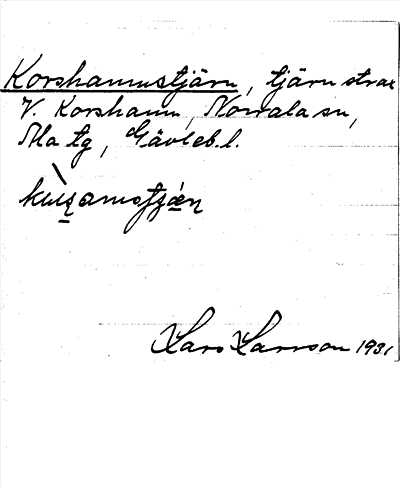 Korshamnstjärn, tjärn strax
V. Korshamn, Norrala sn,
Ala tg, Gävleb. l.
Lars Larsson 1931